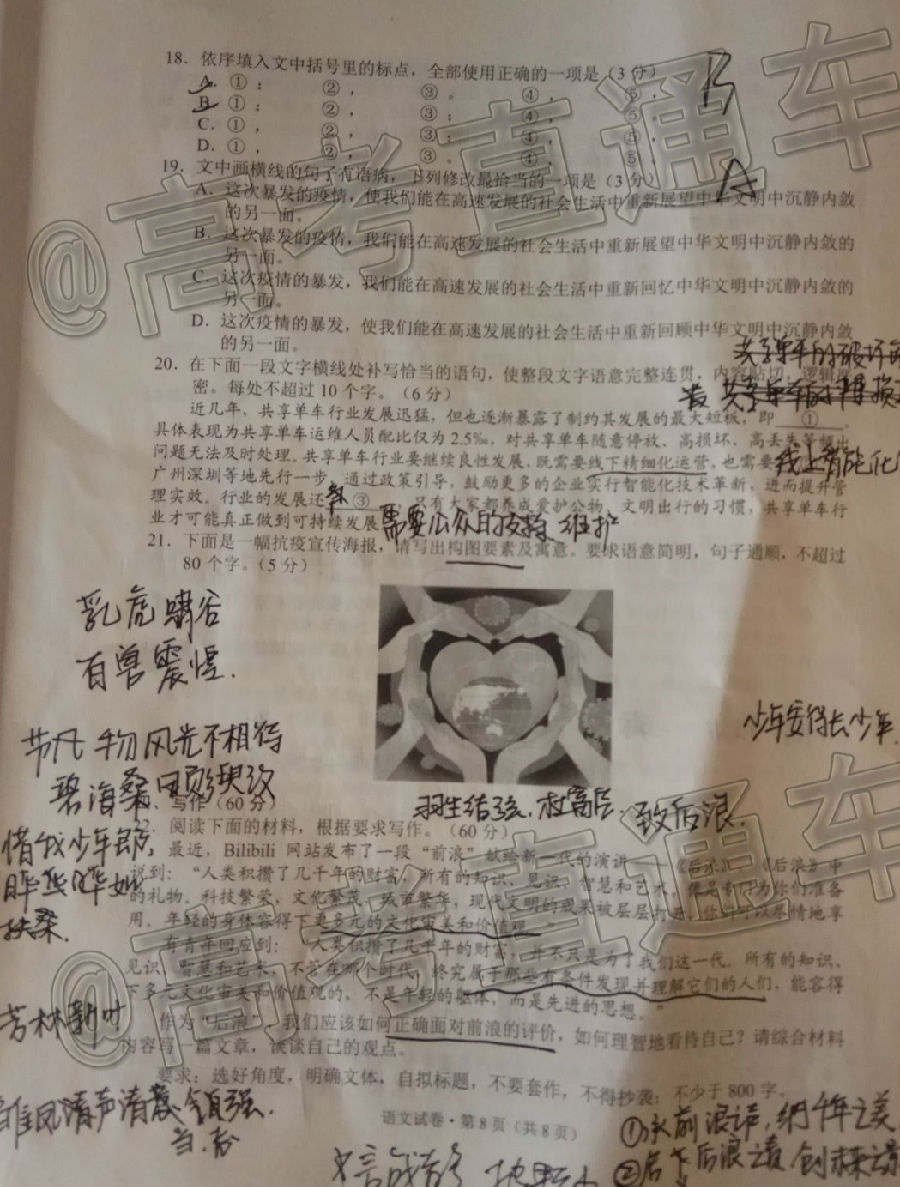 18. 依序填入文中括号里的标点，全部使用正确的一项是（3分）
A. ①； ②， ③。 ④， ⑤，
B. ①； ②， ③； ④， ⑤
C. ①， ②， ③； ④， ⑤
D. ①， ②， ③。 ④， ⑤，
B
19. 文中画横线的句子有语病，下列修改最恰当的一项是（3分）
A
A. 这次暴发的疫情，使我们能在高速发展的社会生活中重新展望中华文明中沉静内敛
的另一面。
B. 这次暴发的疫情，我们能在高速发展的社会生活中重新展望中华文明中沉静内敛的
另一面。
C. 这次疫情的暴发，我们能在高速发展的社会生活中重新回忆中华文明中沉静内敛的
另一面。
D. 这次疫情的暴发，使我们能在高速发展的社会生活中重新回顾中华文明中沉静内敛
的另一面。
20. 在下面一段文字横线处补写恰当的语句，使整段文字语意完整连贯，内容贴切，逻辑严
密。每处不超过10个字。（6分）
近几年，共享单车行业发展迅猛，但也逐渐暴露了制约其发展的最大短板，即 ① 。
具体表现为共享单车运维人员配比仅为2.5‰，对共享单车随意停放、高损坏、高丢失等频出
问题无法及时处理。共享单车行业要继续良性发展，既需要线下精细化运营，也需要
线上智能化
广州深圳等地先行一步，通过政策引导，鼓励更多的企业实行智能化技术革新，进而提升管
理实效。行业的发展还 ③ 只有大家都养成爱护公物、文明出行的习惯，共享单车行
业才可能真正做到可持续发展
需要公众的支持 维护
21. 下面是一幅抗疫宣传海报，请写出构图要素及寓意。要求语意简明，句子通顺，不超过
80个字。（5分）
乳虎啸谷
百兽震惶.
少年安得长少年
节凡 物风光不相待
写作（60分）
致后浪.
22. 阅读下面的材料，根据要求写作。（60分）
惜我少年郎，
最近，Bilibili 网站发布了一段“前浪”献给新一代的演讲——《后浪》。《后浪》中
提到：“人类积攒了几千年的财富，所有的知识、见识、智慧和艺术，像是专门为你们准备
的礼物。科技繁荣，文化繁茂，城市繁华，现代文明的成果被层层打开，你们可以尽情地享
用。年轻的身体容得下更多元的文化审美和价值观。”
扶桑.
有青年回应到：“人类积攒了几千年的财富，并不只是为了我们这一代。所有的知识、
见识、智慧和艺术，不管在哪个时代，终究属于那些有条件发现并理解它们的人们，能容得
下多元文化审美和价值观的，不是年轻的躯体，而是先进的思想。”
芳林新叶
作为“后浪”，我们应该如何正确面对前浪的评价，如何理智地看待自己？请综合材料
内容写一篇文章，谈谈自己的观点。
要求：选好角度，明确文体，自拟标题，不要套作，不得抄袭；不少于800字。
语文试卷·第8页（共8页）
雏凤清声清
自强.
①承前浪
②后浪
@高考直通车
@高考直通车